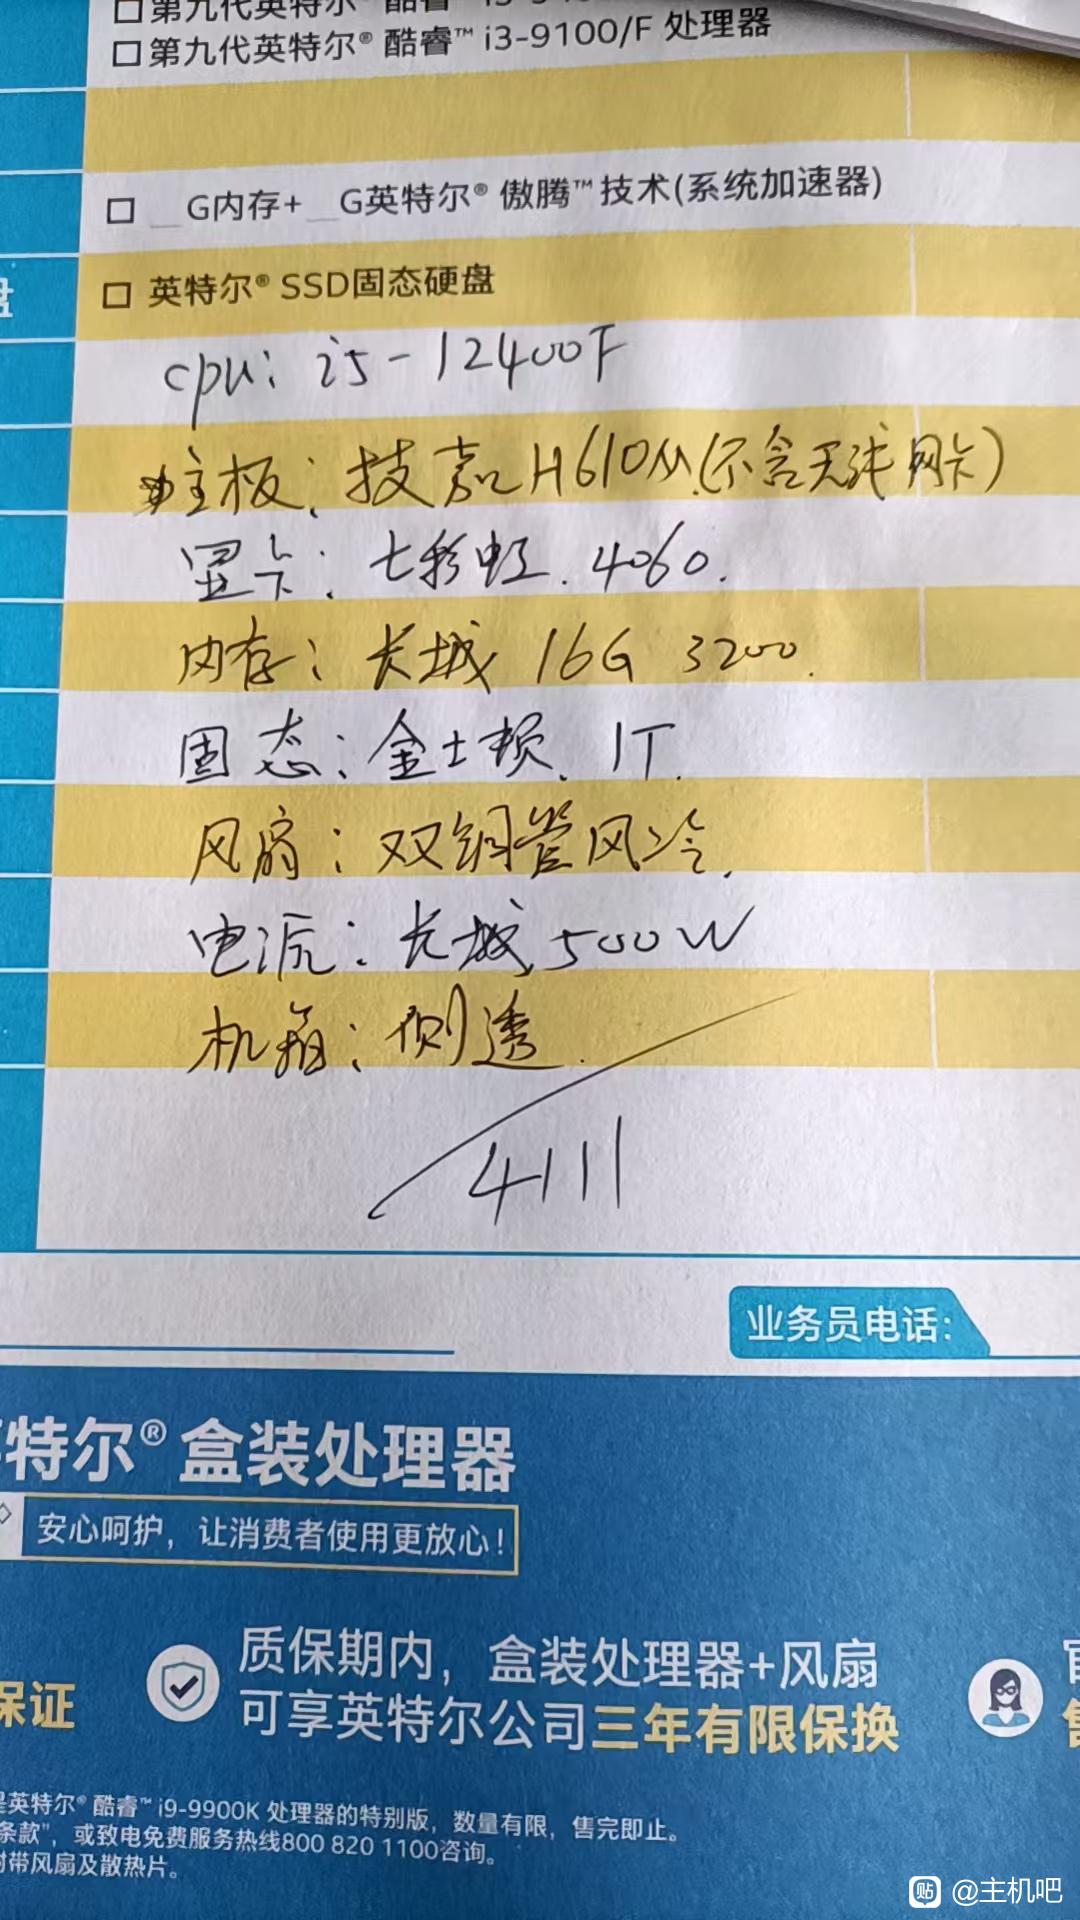 □第九代英特尔® 酷睿™ i3-9
□第九代英特尔® 酷睿™ i3-9100/F 处理器
□ __G内存+__G英特尔® 傲腾™ 技术(系统加速器)
盘
□ 英特尔® SSD固态硬盘
cpu: i5-12400F
主板: 技嘉H610M(不含无线网卡)
显卡: 七彩虹. 4060.
内存: 长城 16G 3200.
固态: 金士顿. 1T.
风扇: 双铜管风冷.
电源: 长城 500W
机箱: 侧透.
4111
业务员电话:
特尔® 盒装处理器
安心呵护，让消费者使用更放心!
保证
质保期内，盒装处理器+风扇
可享英特尔公司三年有限保换
是英特尔® 酷睿™ i9-9900K 处理器的特别版，数量有限，售完即止。
条款"，或致电免费服务热线800 820 1100咨询。
附带风扇及散热片。
贴 @主机吧